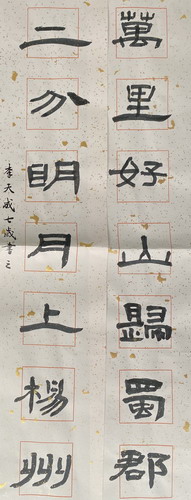 萬里好山歸蜀郡
二分明月上楊州
李天成七歲書之